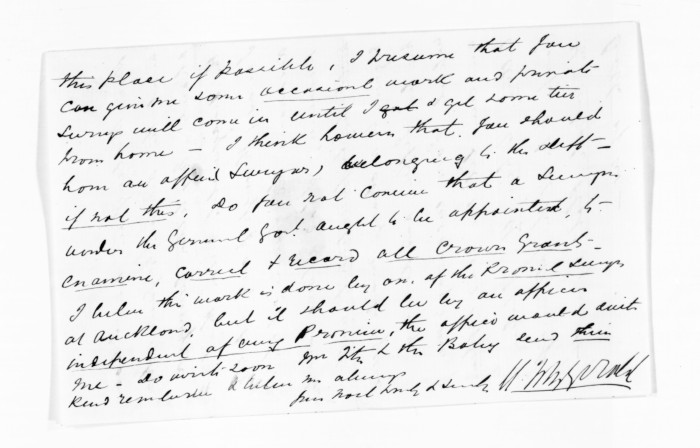 this place if possible, I presume that you
can give me some occasional work and private
surveys will come in until I get some
from home — I think however that you should
have an official Surveyor, belonging to the
if not this, do you not conceive that a Surveyor
under the General Govt ought to be appointed, to
examine, correct & record all Crown Grants —
I believe this work is done by one of the Provincial Surveyors
at Auckland, but it should be by an officer
independent of any Province, the office would suit
me — Do write soon Mrs Fitz & the Baby send their
kind remembrances & believe me always
Yours most truly & sincerely